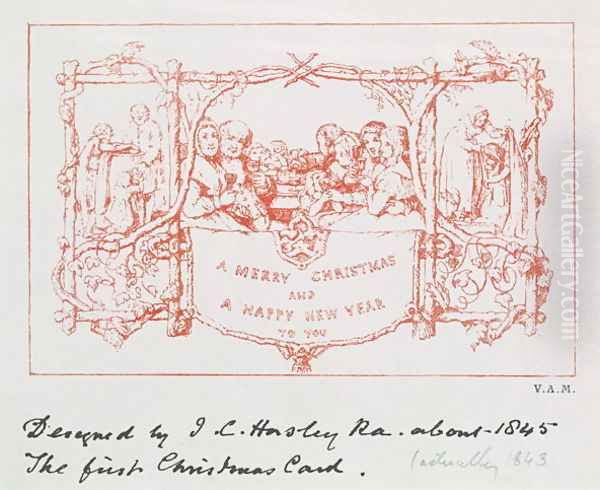 A MERRY CHRISTMAS
AND
A HAPPY NEW YEAR
TO YOU
V.A.M.
Designed by J. C. Horsley Ra. about 1845
The first Christmas Card.
(actually 1843
NiceArtGallery.com